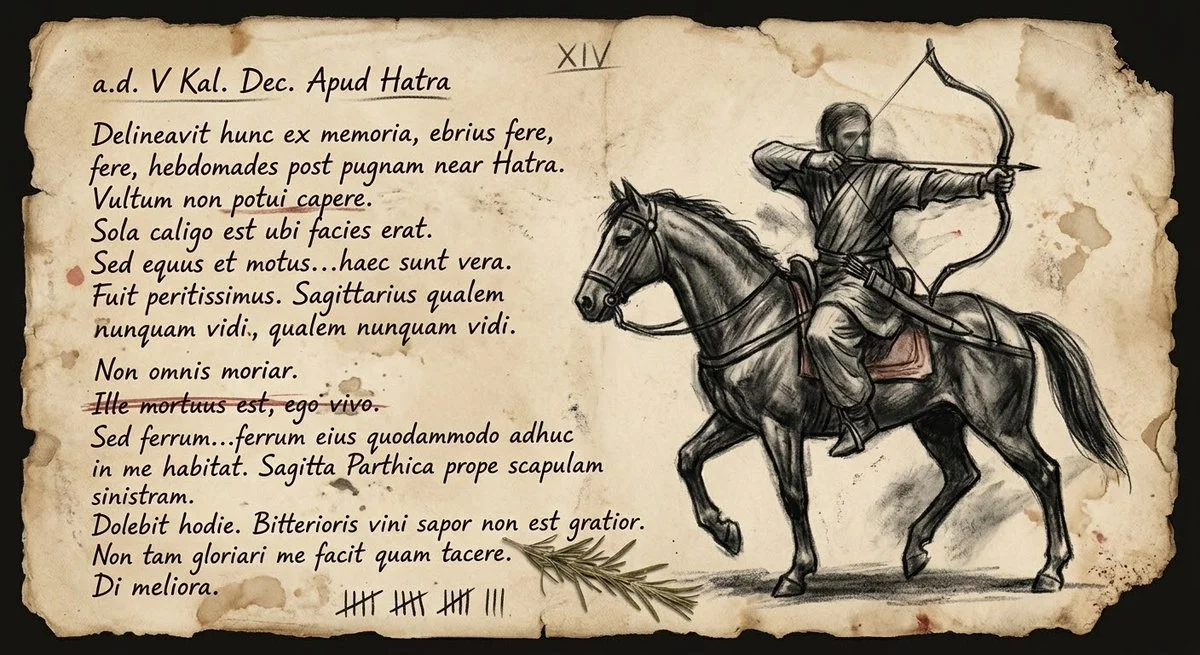 XIV
a.d. V Kal. Dec. Apud Hatra
Delineavit hunc ex memoria, ebrius fere,
fere, hebdomades post pugnam near Hatra.
Vultum non potui capere.
Sola caligo est ubi facies erat.
Sed equus et motus...haec sunt vera.
Fuit peritissimus. Sagittarius qualem
nunquam vidi., qualem nunquam vidi.
Non omnis moriar.
Ille mortuus est, ego vivo.
Sed ferrum...ferrum eius quodammodo adhuc
in me habitat. Sagitta Parthica prope scapulam
sinistram.
Dolebit hodie. Bitterioris vini sapor non est gratior.
Non tam gloriari me facit quam tacere.
Di meliora.